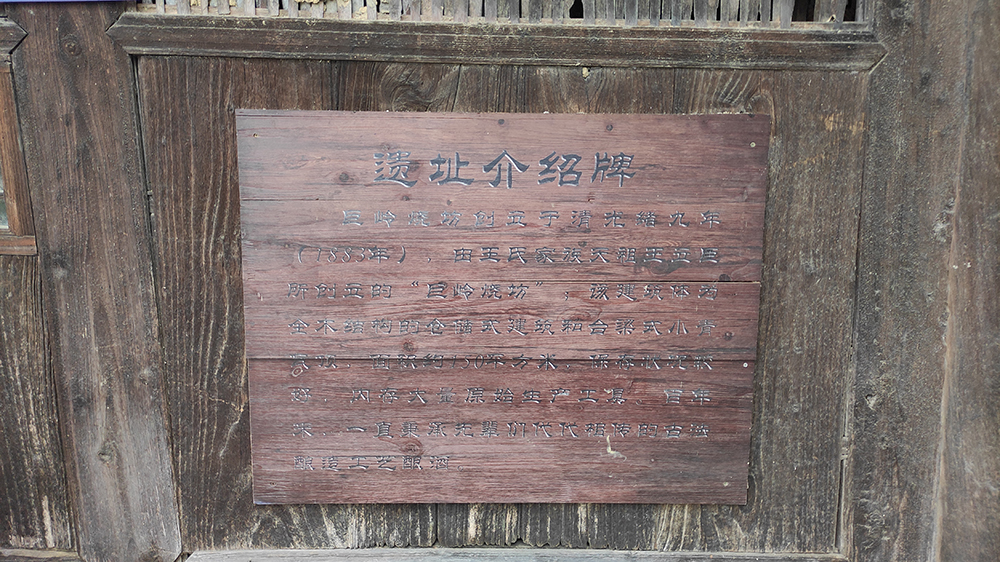 遗址介绍牌
巨岭烧坊创立于清光绪九年
(1883年)，由王氏家族天祖王立巨
所创立的“巨岭烧坊”，该建筑体为
全木结构的仓储式建筑和台梁式小青
瓦, 面积约150平方米，保存状况较
好，内存大量原始生产工具，百年
来，一直秉承先辈们代代相传的古法
酿造工艺酿酒。